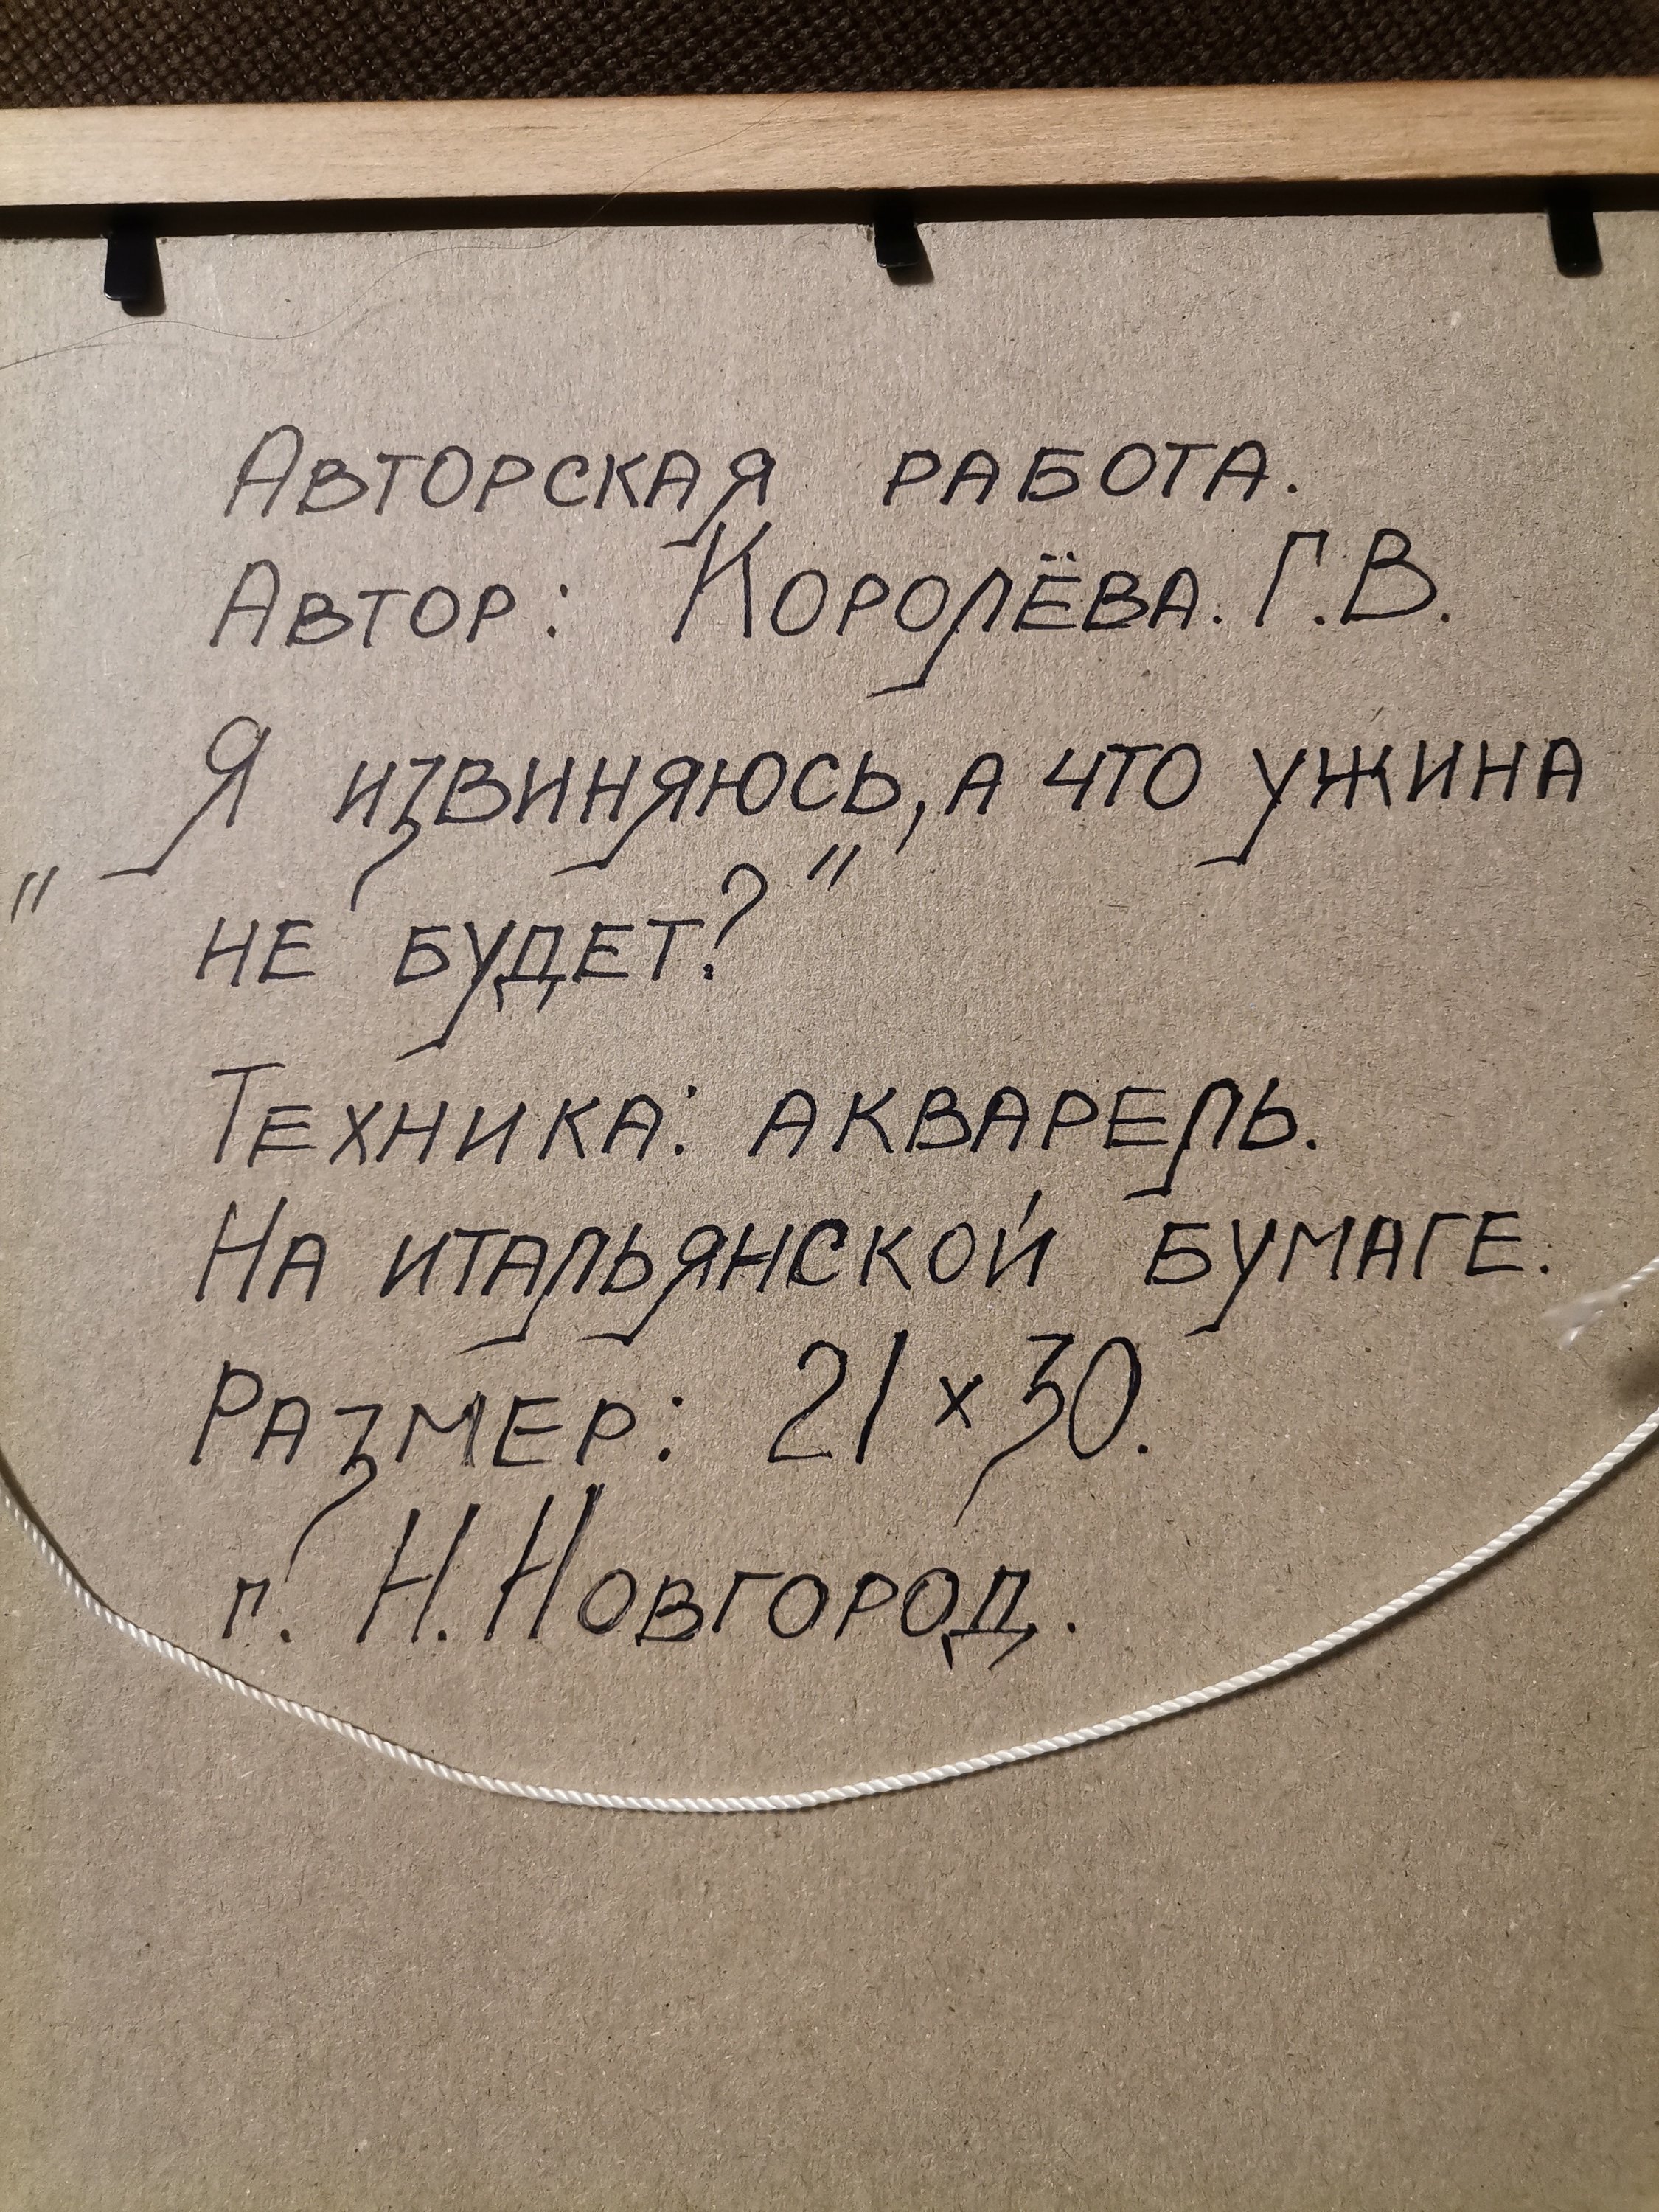 Авторская работа.
Автор: Королёва. Г.В.
"Я извиняюсь, а что ужина
не будет?"
Техника: акварель.
На итальянской бумаге.
Размер: 21 х 30.
г. Н.Новгород.